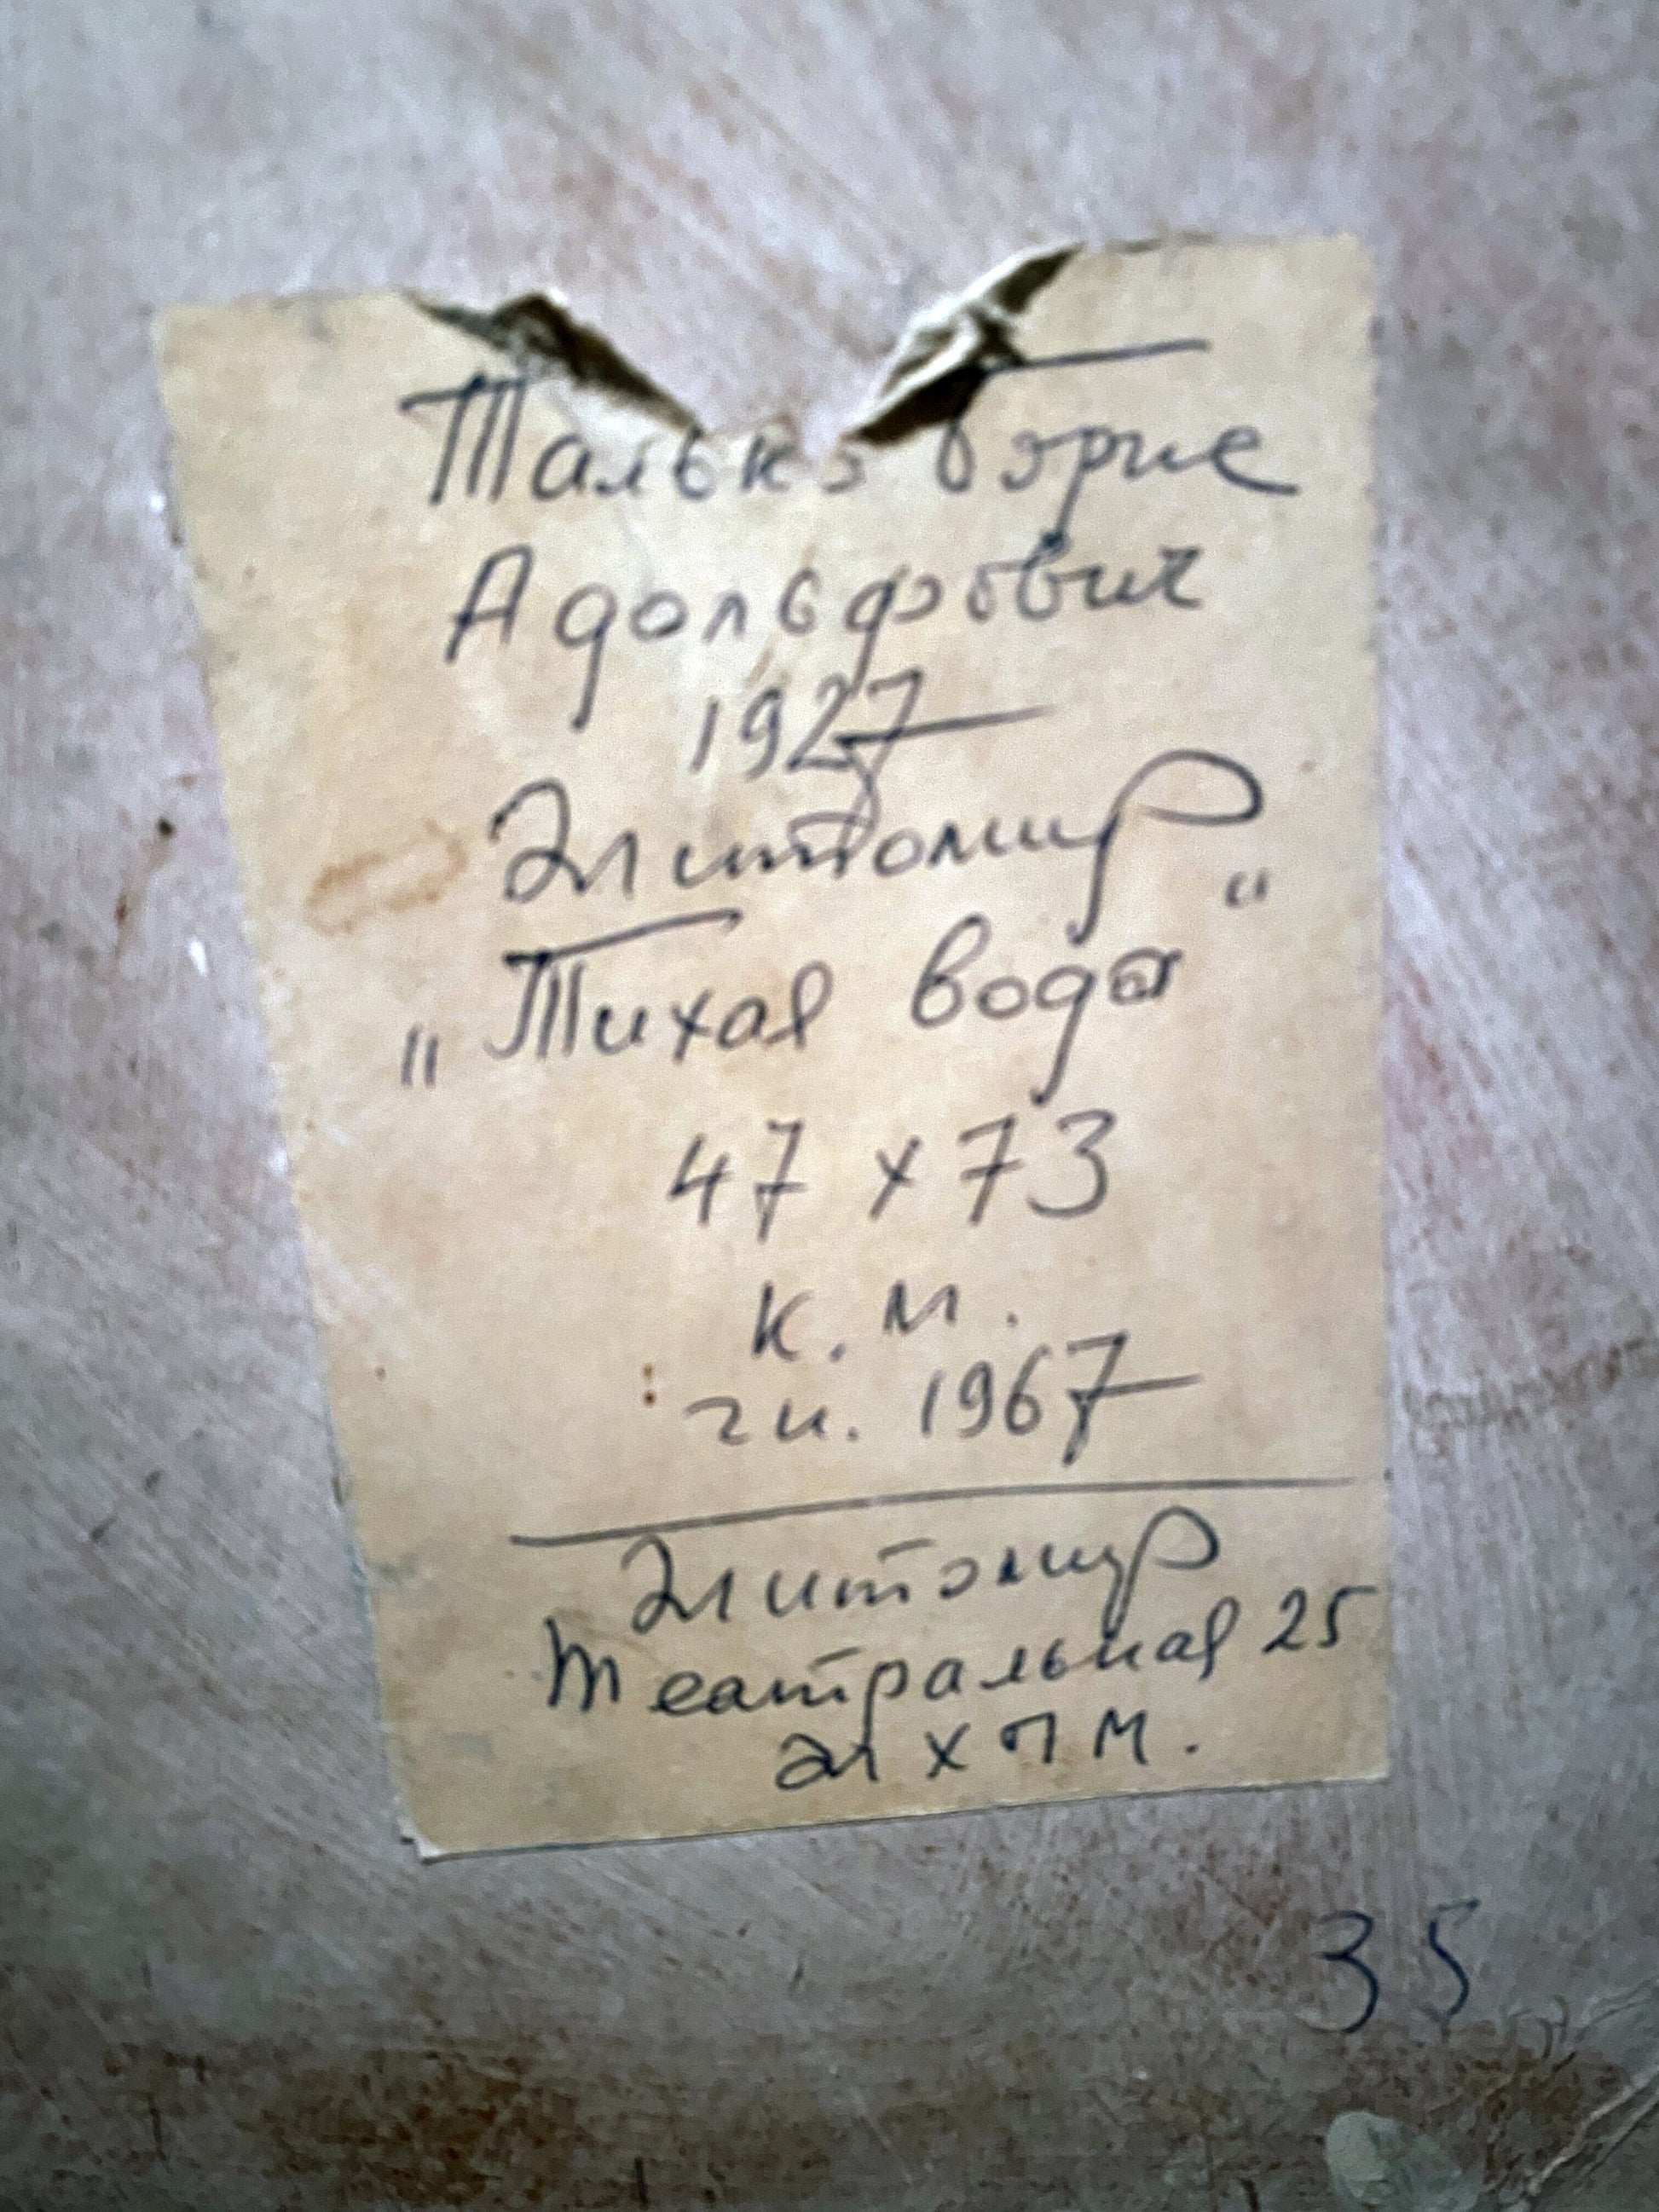 Талько Борис
Адольфович
1927
Житомир
„Тихая вода“
47 x 73
к. м.
1967
Житомир
Театральная 25
ЖХПМ.
35